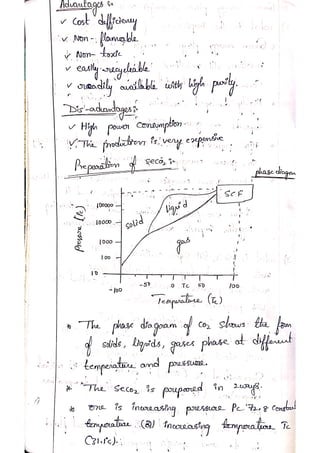 Advantages :-
✓ Cost efficiency
✓ Non-flamable
✓ Non-toxic
✓ easily recycleable
✓ readily available with high purity.
Dis-advantages:-
✓ High power consumption
✓ The production is very expensive
Preparation of SCCO₂ :-
phase diagram
SCF
Pressure (Pc)
100000
10000
1000
100
10
solid
liquid
gas
-100
-50
0
Tc
50
100
Temperature (Tc)
* The phase diagram of CO₂ shows the form
of solids, liquids, gases phase at different
temperature and pressure.
* The SCCO₂ is prepared in 2 ways.
* one is increasing pressure Pc 72.8 constant
temperature (or) increasing temperature Tc
(31.1c).